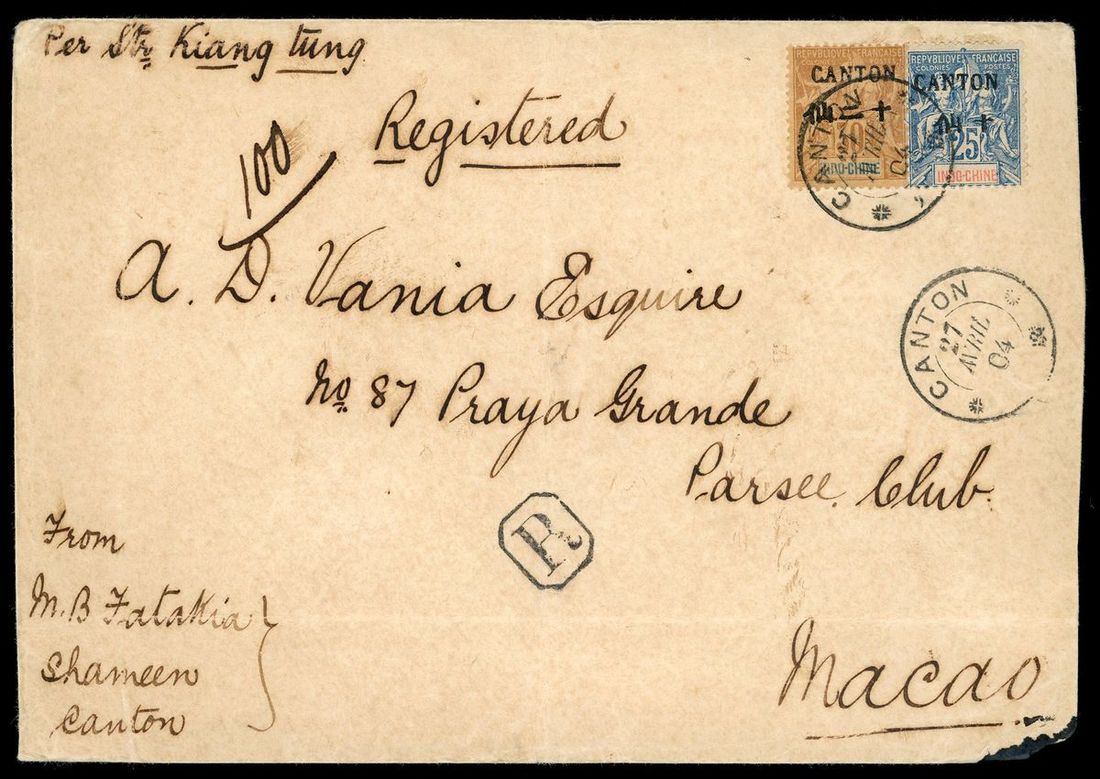 Per Str. Kiang tung
Registered
100
A. D. Vania Esquire
No. 87 Praya Grande
Parsee Club.
Macao
From
M. B Fatakia
Shameen
Canton
R
REPVBLIQUE FRANÇAISE
COLONIES POSTES
CANTON
INDO-CHINE
REPVBLIQUE FRANÇAISE
COLONIES POSTES
CANTON
25
INDO-CHINE
CANTON
27
AVRIL
04
CANTON
27
AVRIL
04